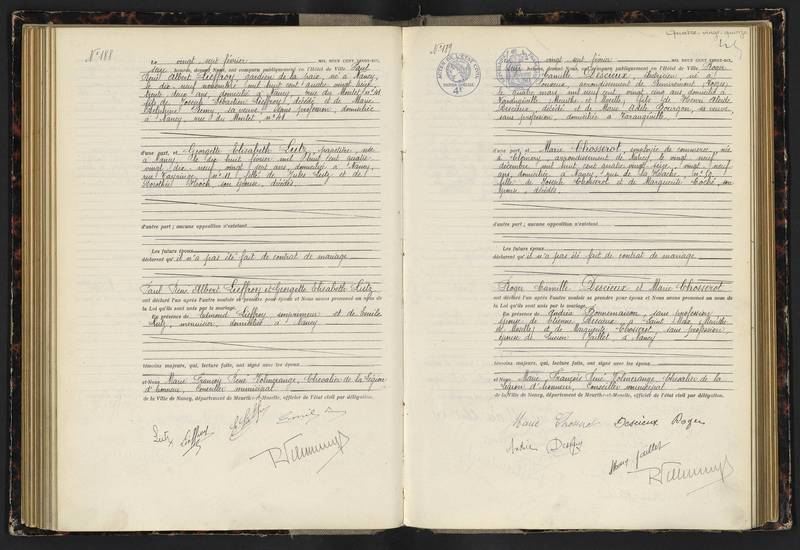 N° 188
Le vingt sept février MIL NEUF CENT VINGT-SIX,
seize heures, devant Nous, ont comparu publiquement en l'Hôtel de Ville Paul
René Albert Lieffroy, gardien de la paix, né à Nancy,
le dix neuf novembre mil huit cent quatre vingt treize,
trente deux ans, domicilié à Nancy, rue du Montet, n° 41
fils de Joseph Sébastien Lieffroy, décédé et de Marie
sa veuve, sans profession, domiciliée
à Nancy, rue du Montet n° 41
d'une part, et Georgette Elisabeth Lutz, papetière, née
à Nancy le dix huit février mil huit cent quatre
vingt dix neuf, vingt sept ans, domiciliée à Nancy
rue n° 11, fille de Jules Lutz et de
Dorothée son épouse, décédés.
d'autre part ; aucune opposition n'existant
Les futurs époux
déclarent qu'il n'a pas été fait de contrat de mariage
Paul René Albert Lieffroy et Georgette Elisabeth Lutz
ont déclaré l'un après l'autre vouloir se prendre pour époux et Nous avons prononcé au nom de
la Loi qu'ils sont unis par le mariage.
En présence de Edmond Lieffroy, imprimeur et de Emile
Lutz, menuisier, domiciliés à Nancy
témoins majeurs, qui, lecture faite, ont signé avec les époux
et Nous Marie François René Tolmerange, Chevalier de la Légion
d'honneur, Conseiller municipal
de la Ville de Nancy, département de Meurthe-et-Moselle, officier de l'état civil par délégation.
Lutz Lieffroy
Quatre-vingt-quinze
N° 189
Le vingt sept février MIL NEUF CENT VINGT-SIX,
seize heures, devant Nous, ont comparu publiquement en l'Hôtel de Ville Roger
Camille Descieux, né à
arrondissement de
le quatre mars mil neuf cent, vingt cinq ans, domicilié à
Meurthe et Moselle, fils de
Descieux, décédé et de Marie Adèle Bourgon, sa veuve,
sans profession, domiciliée à
d'une part, et Marie Chosserot, employée de commerce, née
à arrondissement de Nancy, le vingt neuf
décembre mil huit cent quatre vingt seize, vingt neuf
ans, domiciliée à Nancy, rue de la
fille de Joseph Chosserot et de Marguerite son
épouse, décédés.
d'autre part ; aucune opposition n'existant
Les futurs époux
déclarent qu'il n'a pas été fait de contrat de mariage
Roger Camille Descieux et Marie Chosserot
ont déclaré l'un après l'autre vouloir se prendre pour époux et Nous avons prononcé au nom de
la Loi qu'ils sont unis par le mariage.
En présence de Andréa Bonnemaison, sans profession,
épouse de Etienne Descieux à Saint Max, Meurthe
et Moselle, et de Marguerite Chosserot, sans profession
épouse de Lucien Jaillet, à Nancy
témoins majeurs, qui, lecture faite, ont signé avec les époux
et Nous Marie François René Tolmerange Chevalier de la
Légion d'honneur, Conseiller municipal
de la Ville de Nancy, département de Meurthe-et-Moselle, officier de l'état civil par délégation.
Marie Chosserot Descieux Roger
Jaillet